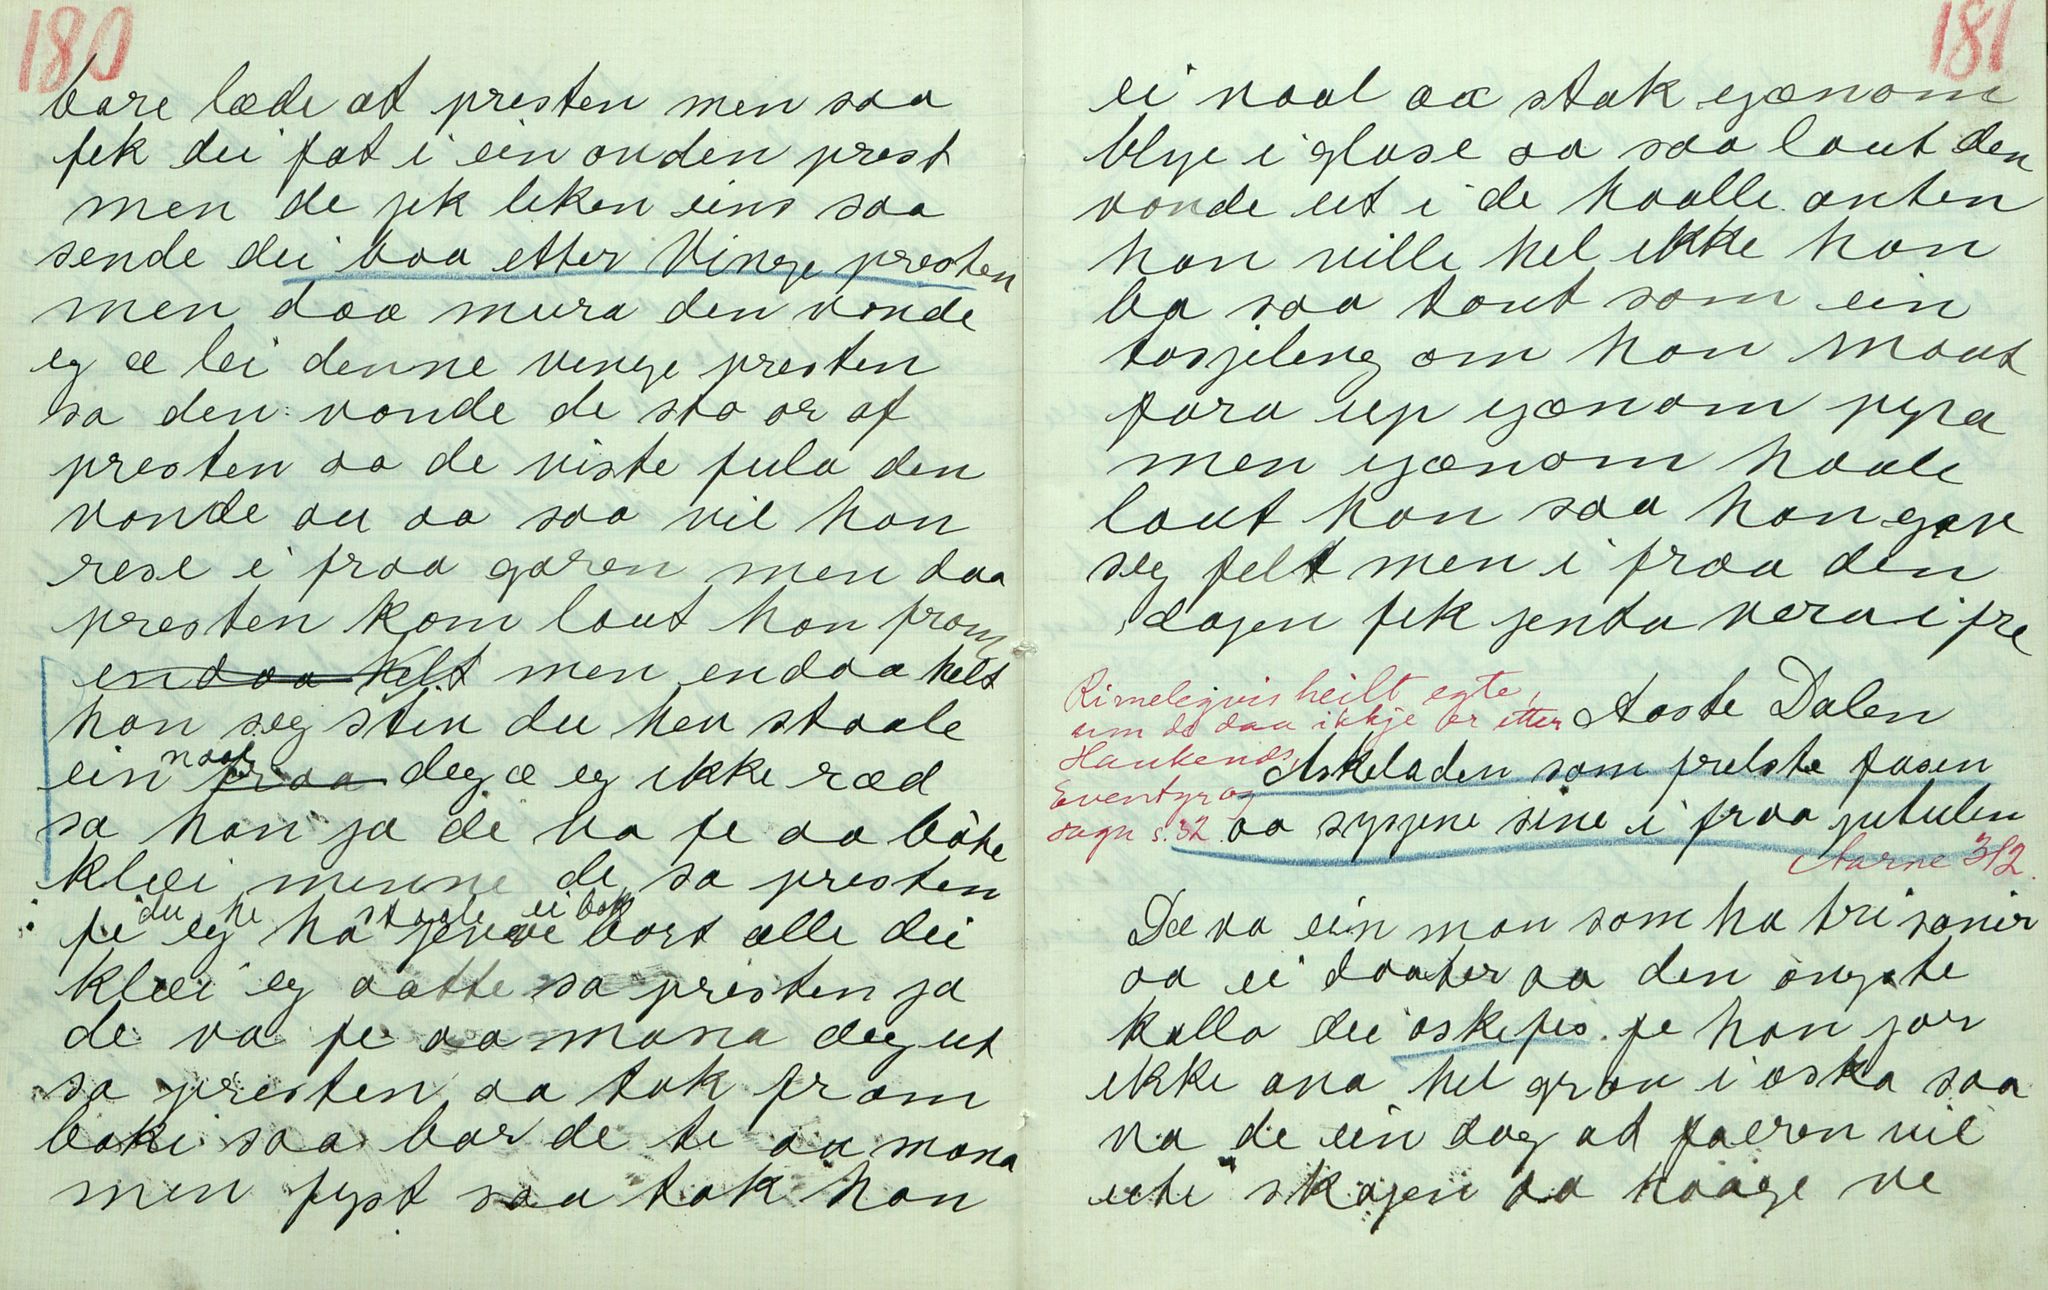 180
bare læde at presten men saa
fek dei fat i ein anden prest
men de jek liken eins saa
sende dei baa etter Vinge presten
men daa mura den vonde
eg æ lei denne vinge presten
sa den vonde de sto or af
presten aa de viste fula den
vonde au aa saa vil han
rese i fraa garen men daa
presten kom laut han fram
endaa helt men endaa helt
han seg stin du hev staale
ein naal fraa deg æ eg ikke ræd
sa han ja de va fe aa böte
klæi minne de sa presten
fe eg ha jeve bort alle dei
du he staale ei bok
klæi eg aatte sa presten ja
de va fe aa mana deg ut
sa presten aa tok fram
boki saa bar de te aa mana
men fyst saa tok han
181
ei naal aa stak gjænom
blye i glase aa saa laut den
vonde ut i de haalle anten
han ville hel ikke han
ba saa tout som ein
tosjeleng om han maat
fara up gjænom pypa
men gjænom haale
laut han saa han gav
seg felt men i fraa den
dagen fek jenta vera i fre
Rimelegvis heilt egte,
um de daa ikkje er etter
Haukenæs,
Eventyr og
sagn s. 32.
Aaste Dalen
Askeladen som frelste faren
aa syjene sine i fraa jutulen
Aarne 312.
Dæ va ein man som ha tri sønir
aa ei daater aa den øngste
kalla dei oskefis. fe han jor
ikke ana hel grov i oska saa
va de ein dag at faeren vil
ut i skogen aa haage ve